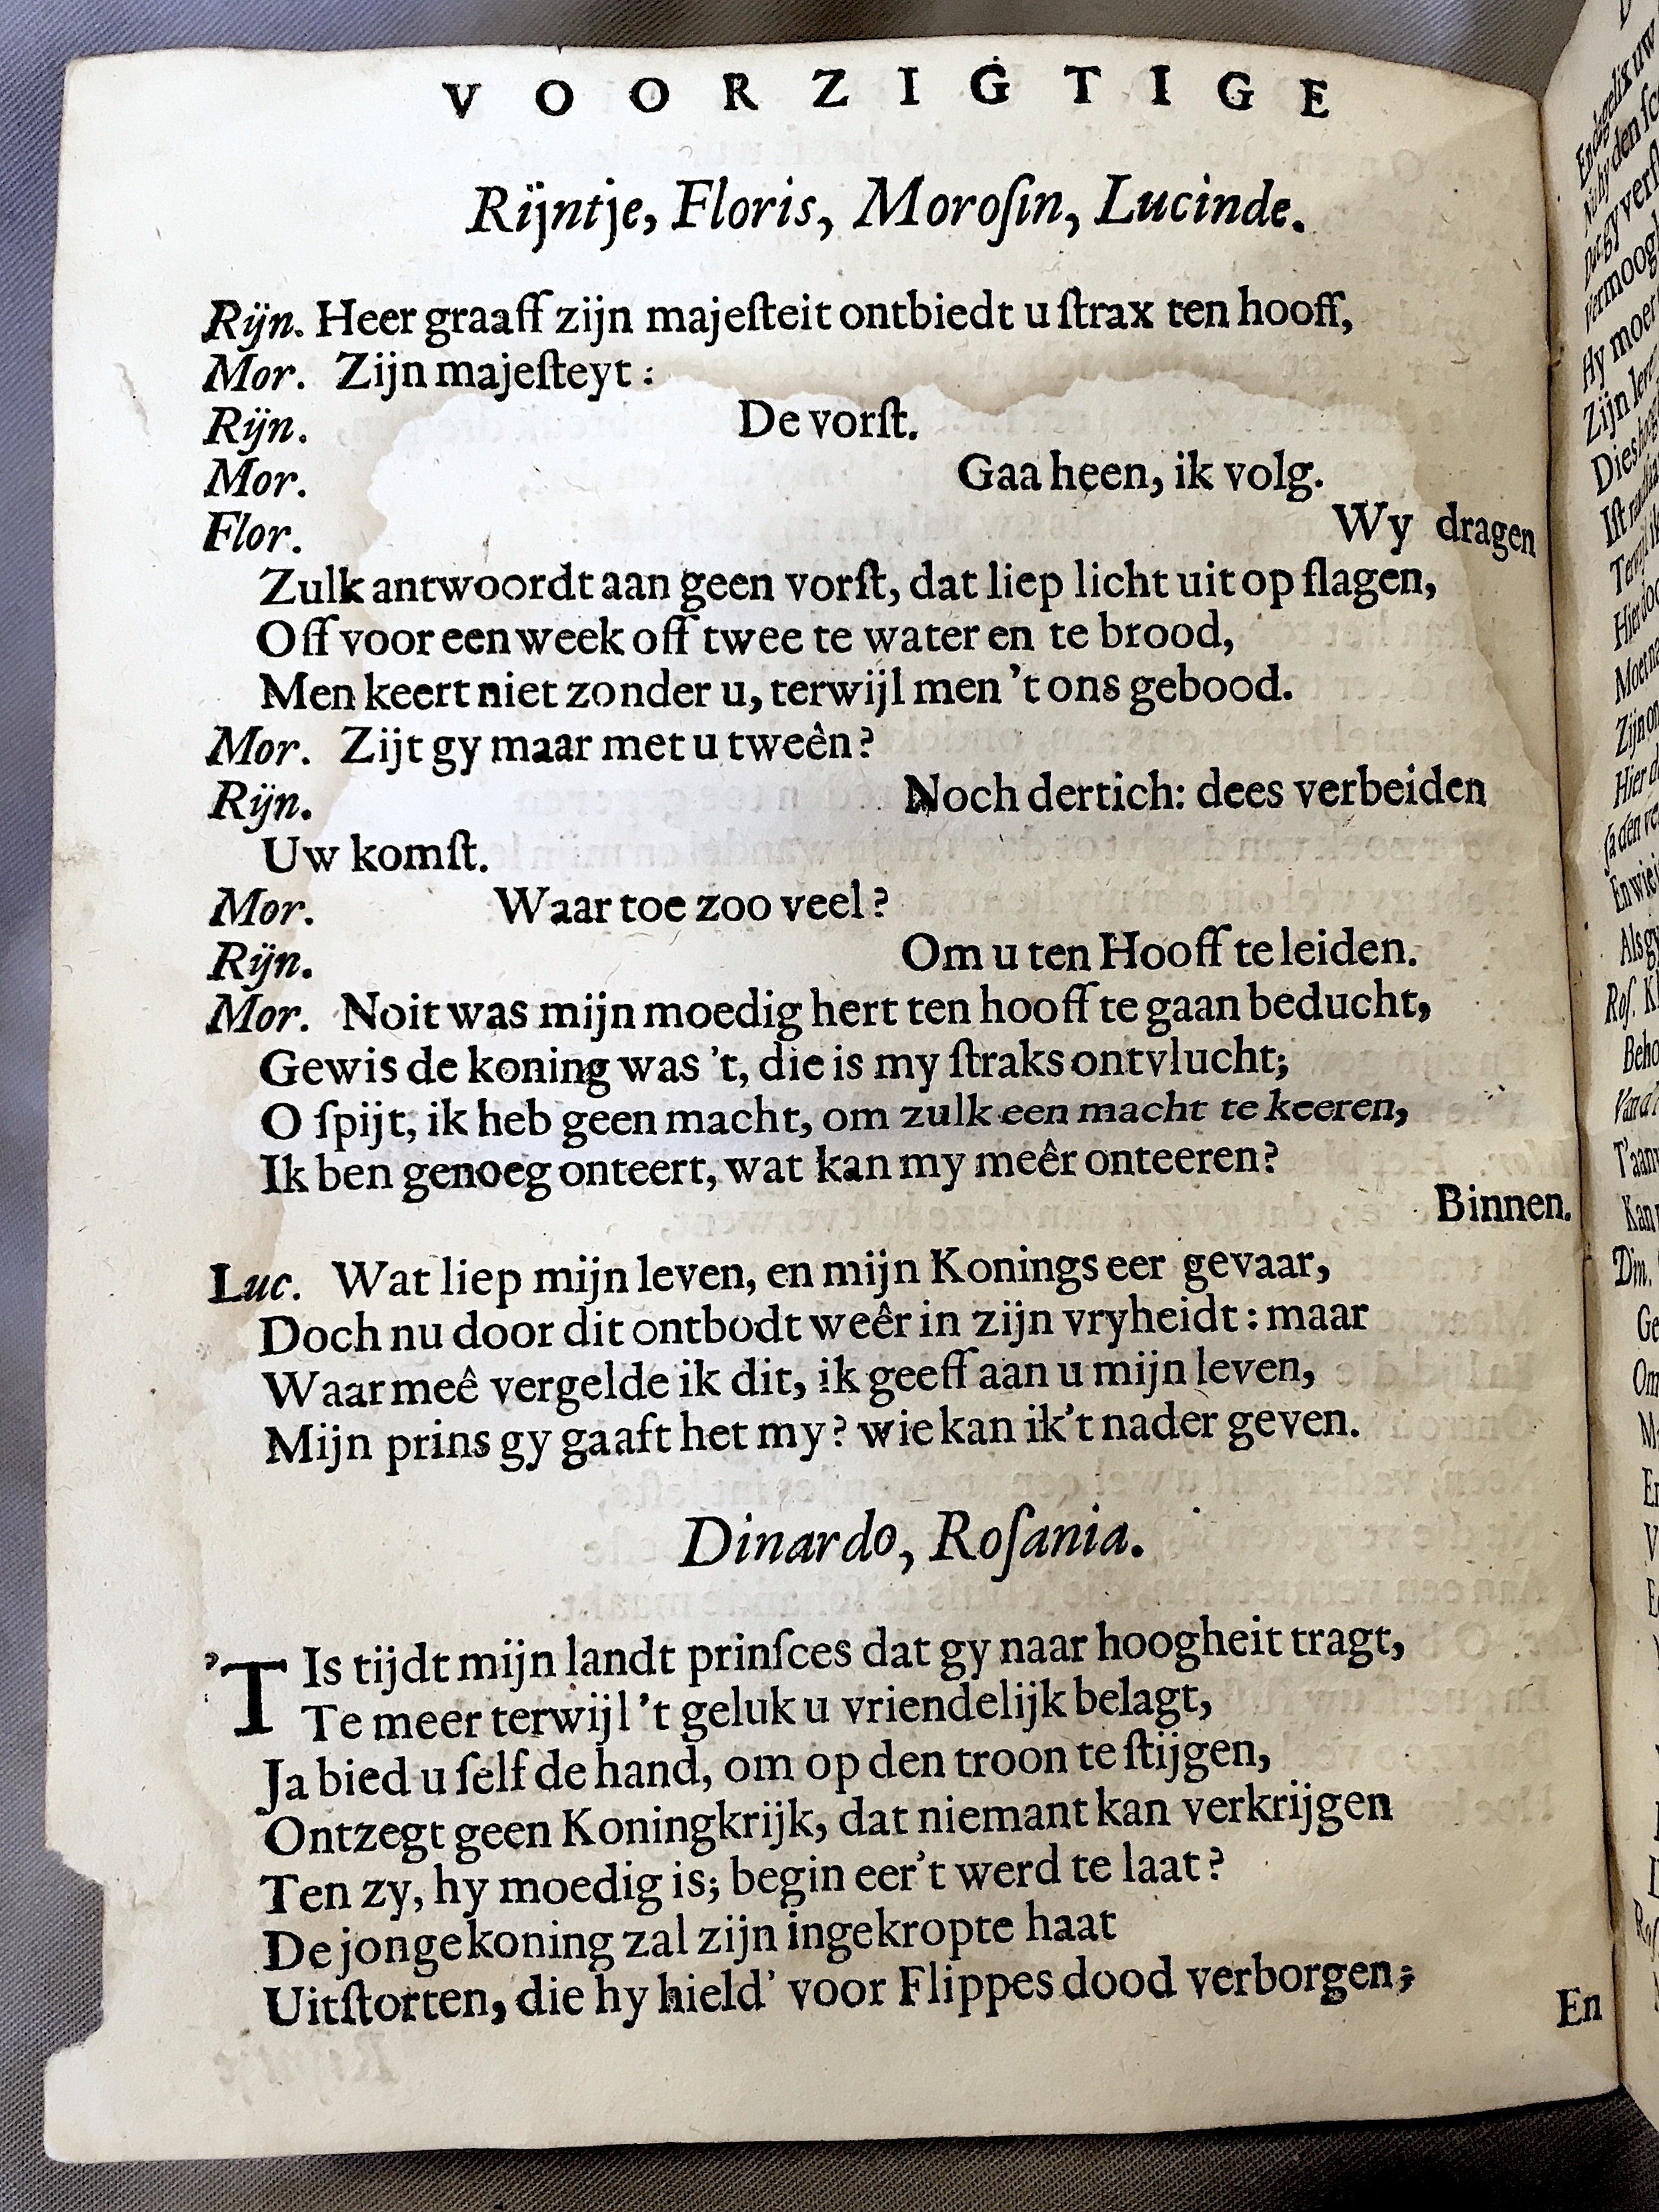 VOORZIGTIGE
Rijntje, Floris, Moroſin, Lucinde.
Rijn. Heer graaff zijn majeſteit ontbiedt u ſtrax ten hooff,
Mor. Zijn majeſteyt :
Rijn. De vorſt.
Mor. Gaa heen, ik volg.
Flor. Wy dragen
Zulk antwoordt aan geen vorſt, dat liep licht uit op ſlagen,
Off voor een week off twee te water en te brood,
Men keert niet zonder u, terwijl men 't ons gebood.
Mor. Zijt gy maar met u tweên?
Rijn. Noch dertich: dees verbeiden
Uw komſt.
Mor. Waar toe zoo veel?
Rijn. Om u ten Hooff te leiden.
Mor. Noit was mijn moedig hert ten hooff te gaan beducht,
Gewis de koning was 't, die is my ſtraks ontvlucht;
O ſpijt, ik heb geen macht, om zulk een macht te keeren,
Ik ben genoeg onteert, wat kan my meêr onteeren?
Binnen.
Luc. Wat liep mijn leven, en mijn Konings eer gevaar,
Doch nu door dit ontbodt weêr in zijn vryheidt : maar
Waar meê vergelde ik dit, ik geeff aan u mijn leven,
Mijn prins gy gaaft het my? wie kan ik't nader geven.
Dinardo, Roſania.
'T Is tijdt mijn landt prinſces dat gy naar hoogheit tragt,
Te meer terwijl 't geluk u vriendelijk belagt,
Ja bied u ſelf de hand, om op den troon te ſtijgen,
Ontzegt geen Koningkrijk, dat niemant kan verkrijgen
Ten zy, hy moedig is; begin eer't werd te laat?
De jonge koning zal zijn ingekropte haat
Uitſtorten, die hy hield' voor Flippes dood verborgen;
En